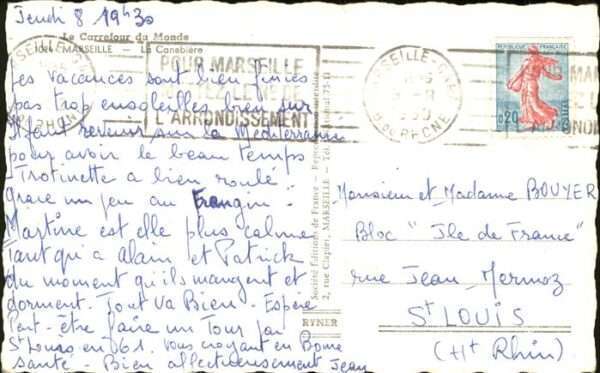 Jeudi 8 19h30
Le Carrefour du Monde
MARSEILLE - La Canebière
POUR MARSEILLE
L'ARRONDISSEMENT
MARSEILLE-GARE
B. DU RHONE
RÉPUBLIQUE FRANÇAISE
0,20
Les vacances sont bien finies
pas trop ensoleillés bien sur
Il faut revenir sur la Méditerranée
pour avoir le beau temps
Trotinette a bien roulé
grace un peu au Frangin.
Martine est elle plus calme
Tant qu'à Alain et Patrick
du moment qu'ils mangent et
dorment. Tout va Bien - Espère
Peut-être faire un Tour par
St Louis en 61. Vous croyant en Bonne
santé - Bien affectueusement Jean
Société Éditions de France - Reproduction interdite
2, rue Clapier, MARSEILLE - Tél.
RYNER
Monsieur et Madame BOUYER
Bloc "Ile de France"
rue Jean Mermoz
St LOUIS
(Ht Rhin)